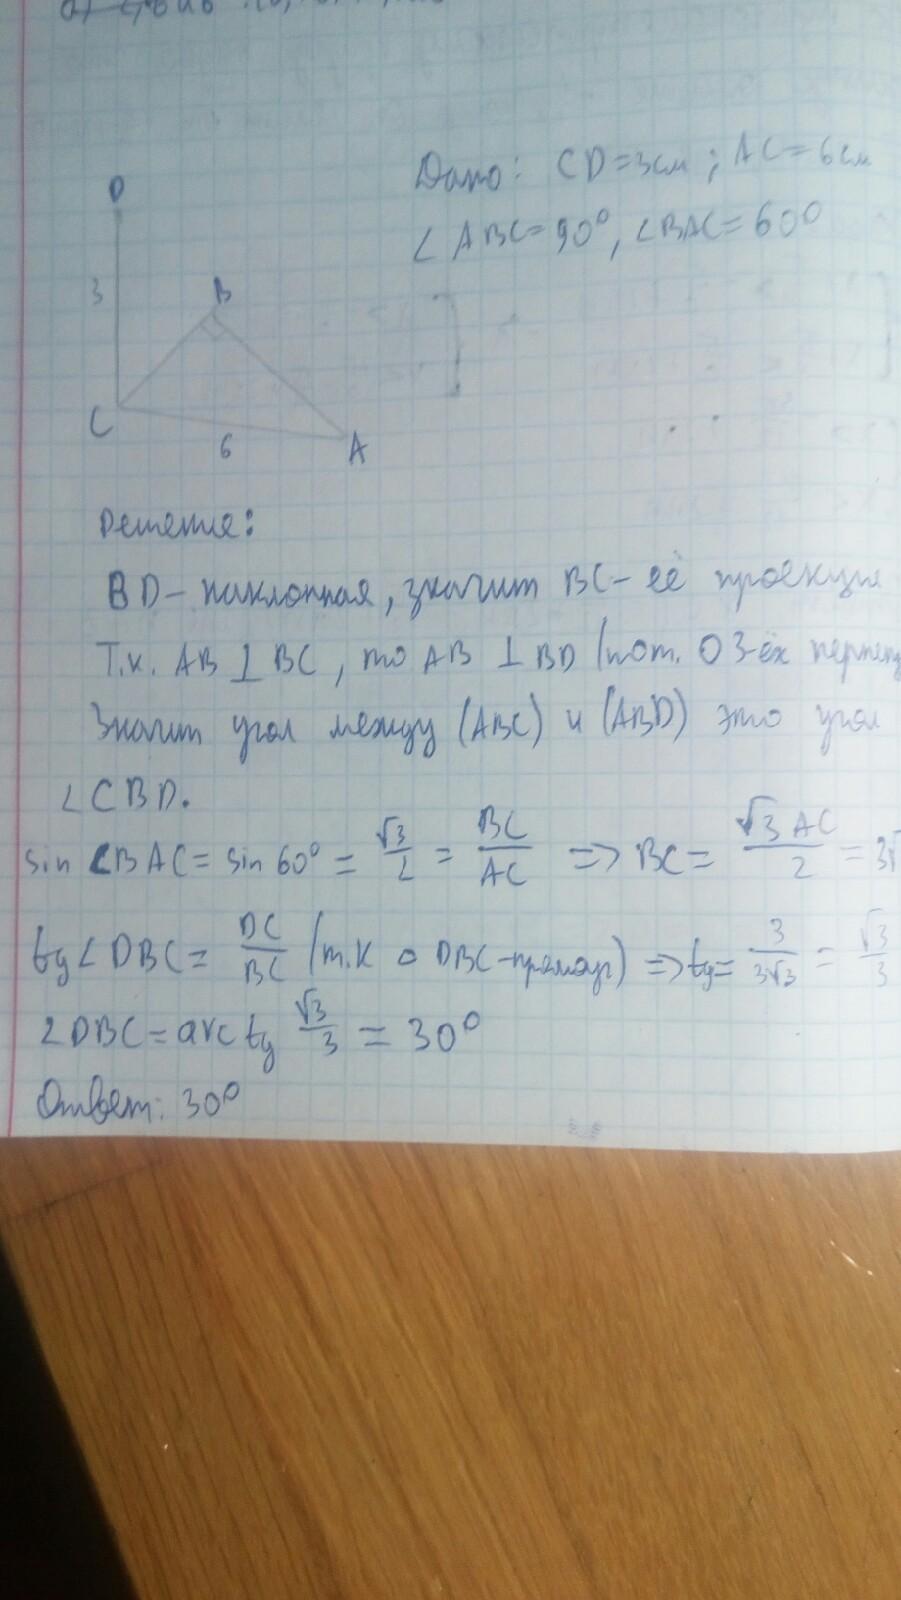 Дано: CD=3см; AC=6см
∠ABC=90°, ∠BAC=60°
D
3
B
C
6
A
Решение:
BD-наклонная, значит BC-её проекция
Т.к. AB ⊥ BC, то AB ⊥ BD (по т. О 3-ёх перпенд
Значит угол между (ABC) и (ABD) это угол
∠CBD.
sin ∠BAC = sin 60° = √3/2 = BC/AC => BC = √3 AC/2 = 3√
tg∠DBC = DC/BC (т.к △ DBC-прямоуг) => tg = 3/3√3 = √3/3
∠DBC = arctg √3/3 = 30°
Ответ: 30°